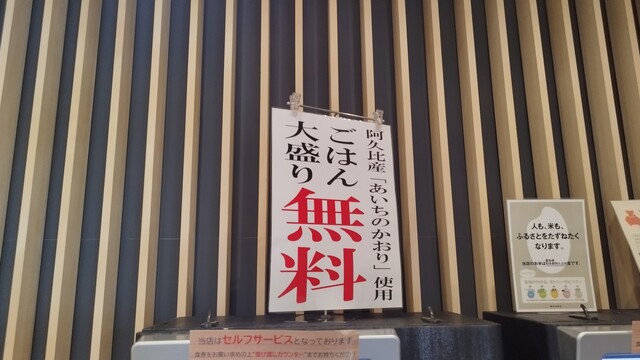 阿久比産「あいちのかおり」使用
ごはん
大盛り
無料
人も、米も、
ふるさとをたずねたく
なります。
当店はセルフサービスとなっております。